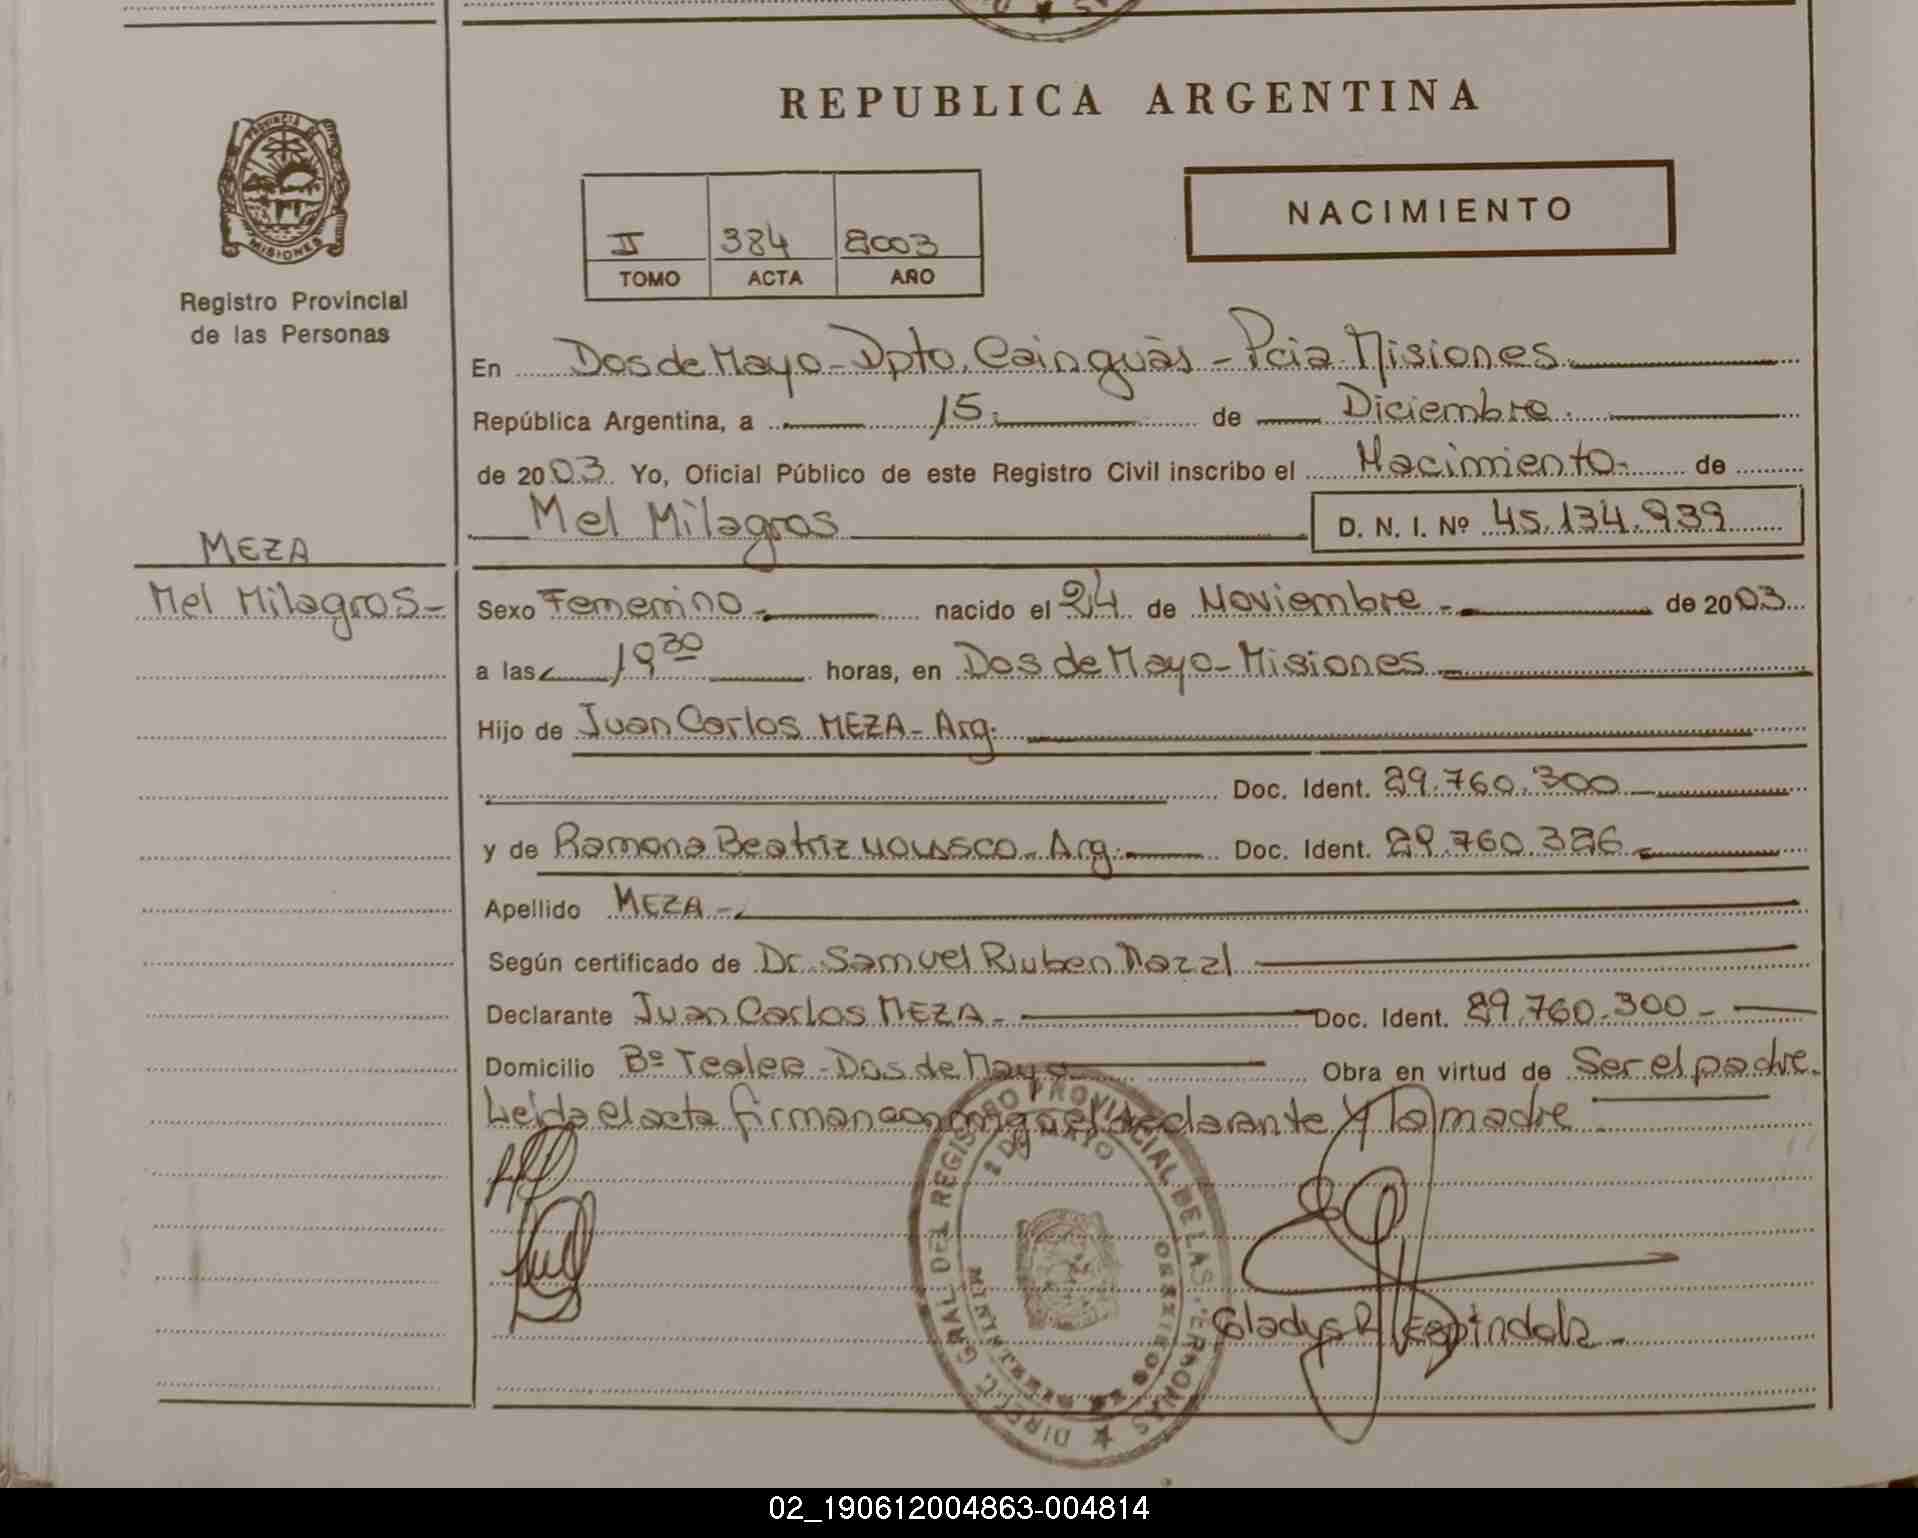 REPUBLICA ARGENTINA
PROVINCIA DE
MISIONES
Registro Provincial
de las Personas
II 384 2003
TOMO ACTA AÑO
NACIMIENTO
En Dos de Mayo - Dpto. Cainguàs - Pcia Misiones
República Argentina, a 15. de Diciembre.
de 2003. Yo, Oficial Público de este Registro Civil inscribo el Nacimiento- de
Mel Milagros D. N. I. Nº 45.134.939
MEZA
Mel Milagros-
Sexo Femenino- nacido el 24 de Noviembre - de 2003
a las 19 30 horas, en Dos de Mayo - Misiones
Hijo de Juan Carlos MEZA - Arg.
Doc. Ident. 29.760.300
y de Ramona Beatriz Arg. Doc. Ident. 29.760.326
Apellido MEZA -
Según certificado de Dr. Samuel Ruben
Declarante Juan Carlos MEZA - Doc. Ident. 29.760.300 -
Domicilio Bº - Dos de Mayo Obra en virtud de Ser el padre.
Leida el acta firman conmigo el declarante y la madre
DIREC. GRAL DEL REGISTRO PROVINCIAL DE LAS PERSONAS
2 DE MAYO
MISIONES
Gladys R. Espindola -
02_190612004863-004814